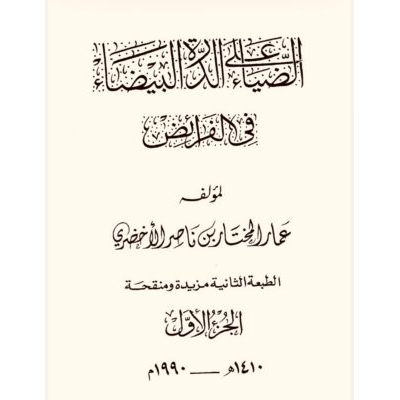 الضِّيَاء عَلَى الدُّرَّة البَيْضَاء
فى الفرائض
لمؤلفه
عمار المختار بن ناصر الأخضري
الطبعة الثانية مزيدة ومنقحة
الجزء الأوّل
١٤١٠هـ ــ ١٩٩٠م